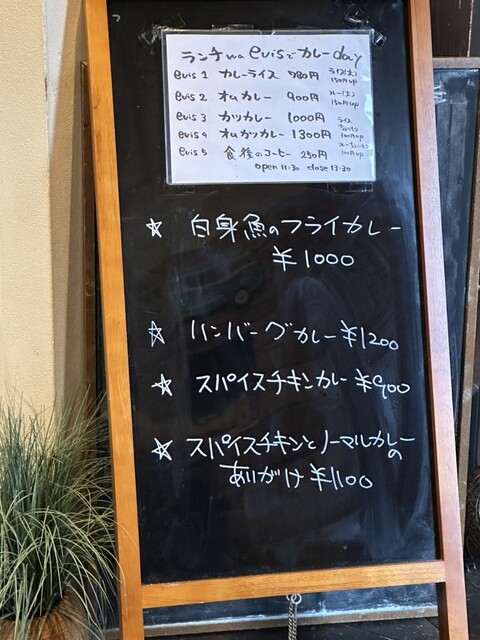 ランチ wa evisでカレーday
evis 1 カレーライス 780円 ライス(大) 150円up
evis 2 オムカレー 900円 ルー(大) 150円up
evis 3 カツカレー 1000円 ライス
evis 4 オムカツカレー 1300円 100円up
evis 5 食後のコーヒー 250円 100円up
open 11:30 close 13:30
☆ 白身魚のフライカレー
¥1000
☆ ハンバーグカレー ¥1200
☆ スパイスチキンカレー ¥900
☆ スパイスチキンとノーマルカレーの
あいがけ ¥1100